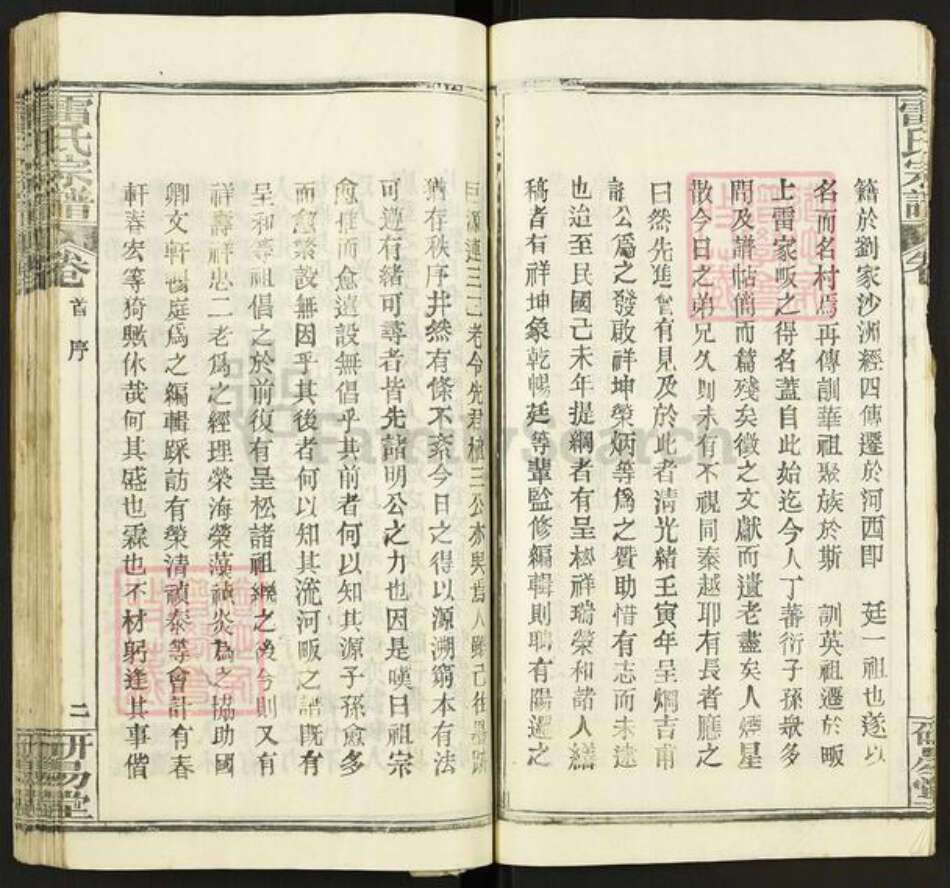 籍於劉家沙洲經四傳遷於河西即　廷一祖也遂以
名而名村焉再傳訓華祖聚族於斯　訓英祖遷於畈
上雷家畈之得名蓋自此始迄今人丁蕃衍子孫衆多
問及譜帖簡而篇殘矣徵之文獻而遺老盡矣人煙星
散今日之弟兄久則未有不視同秦越耶有長者廳之
曰然先進曾有見及於此者清光緒壬寅年呈炯吉甫
諸公爲之發啟祥坤榮炳等爲之贊助惜有志而未逮
也迨至民國己未年提綱者有呈極祥瑞榮和諸人繕
稿者有祥坤象乾暢廷等輩監修編輯則聘有陽邏之
三公亦與
猶存秩序井然有條不紊今日之得以源溯窮本有法
可遵有緒可尋者皆先諸明公之力也因是嘆曰祖宗
愈推而愈遠設無倡乎其前者何以知其源子孫愈多
而愈繁設無因乎其後者何以知其流河畈之譜既有
呈和等祖倡之於前復有呈松諸祖繼之後今則又有
祥壽祥忠二老爲之經理榮海榮藻禎炎爲之協助國
卿文軒暢庭爲之編輯踩訪有榮清禎泰等會計有春
軒春宏等猗歟休哉何其盛也霖也不材躬逢其事偕
雷氏宗譜
卷
首　序
二
研易堂
雷氏宗譜